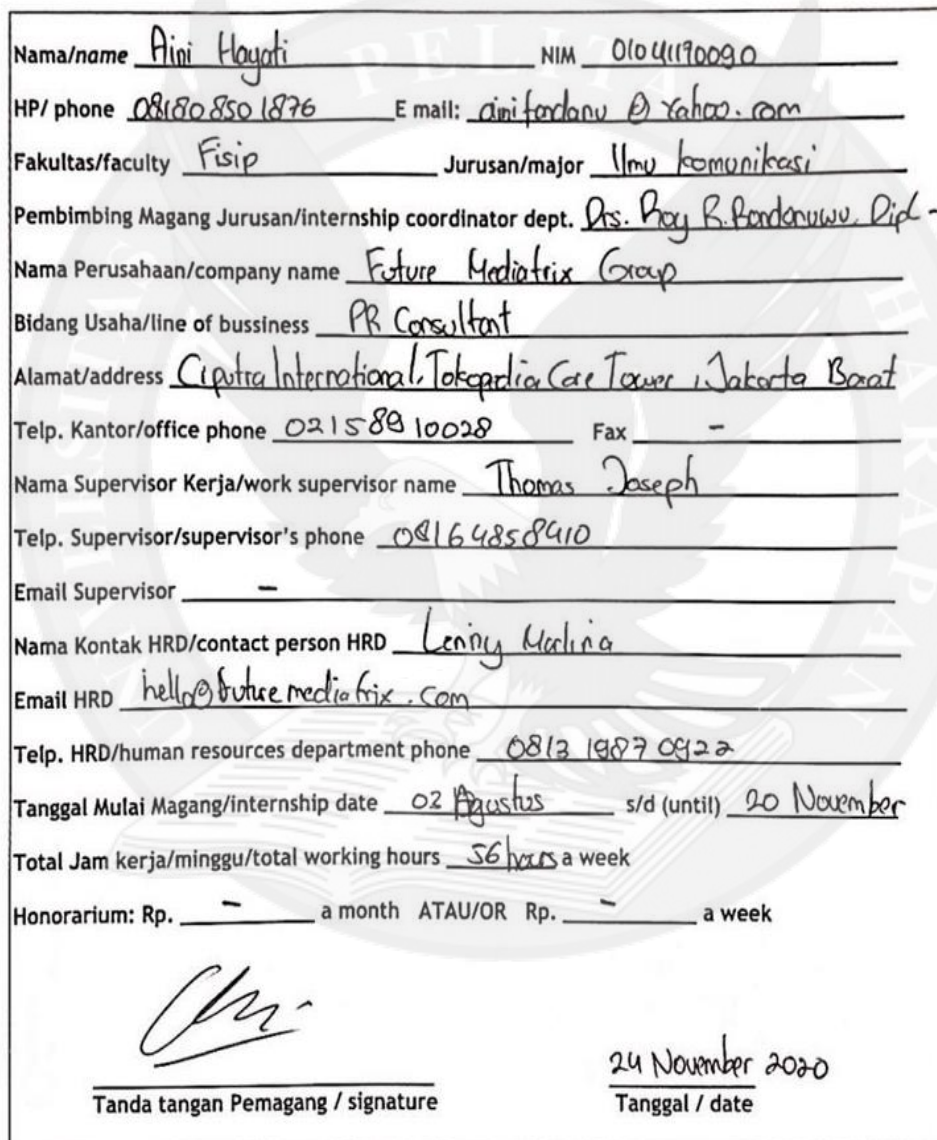 Nama/name Aini Hayati NIM 01041190090
HP/ phone 081808501876 E mail: ainifardanu @ Yahoo.com
Fakultas/faculty Fisip Jurusan/major Ilmu komunikasi
Pembimbing Magang Jurusan/internship coordinator dept. Drs. Roy R. Bondonuwu, Dipl -
Nama Perusahaan/company name Future Mediatrix Group
Bidang Usaha/line of bussiness PR Consultant
Alamat/address Ciputra International, Tokopedia Care Tower, Jakarta Barat
Telp. Kantor/office phone 02158910028 Fax -
Nama Supervisor Kerja/work supervisor name Thomas Joseph
Telp. Supervisor/supervisor's phone 08164858410
Email Supervisor -
Nama Kontak HRD/contact person HRD Lenny Marlina
Email HRD hello@futuremediatrix.com
Telp. HRD/human resources department phone 0813 1987 0922
Tanggal Mulai Magang/internship date 02 Agustus s/d (until) 20 November
Total Jam kerja/minggu/total working hours 56 hours a week
Honorarium: Rp. - a month ATAU/OR Rp. - a week
24 November 2020
Tanda tangan Pemagang / signature Tanggal / date
UNIVERSITAS PELITA HARAPAN